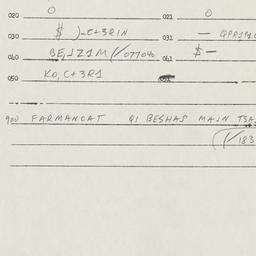 020 O 021 O
030 $ )-C+3RIN 031 — QPR1P1C
040 BE,JZ1M (/077040 041 $ —
050 KO,C+3R1
900 FARMANCAT QI BESHAS MAJN T3A
(/183